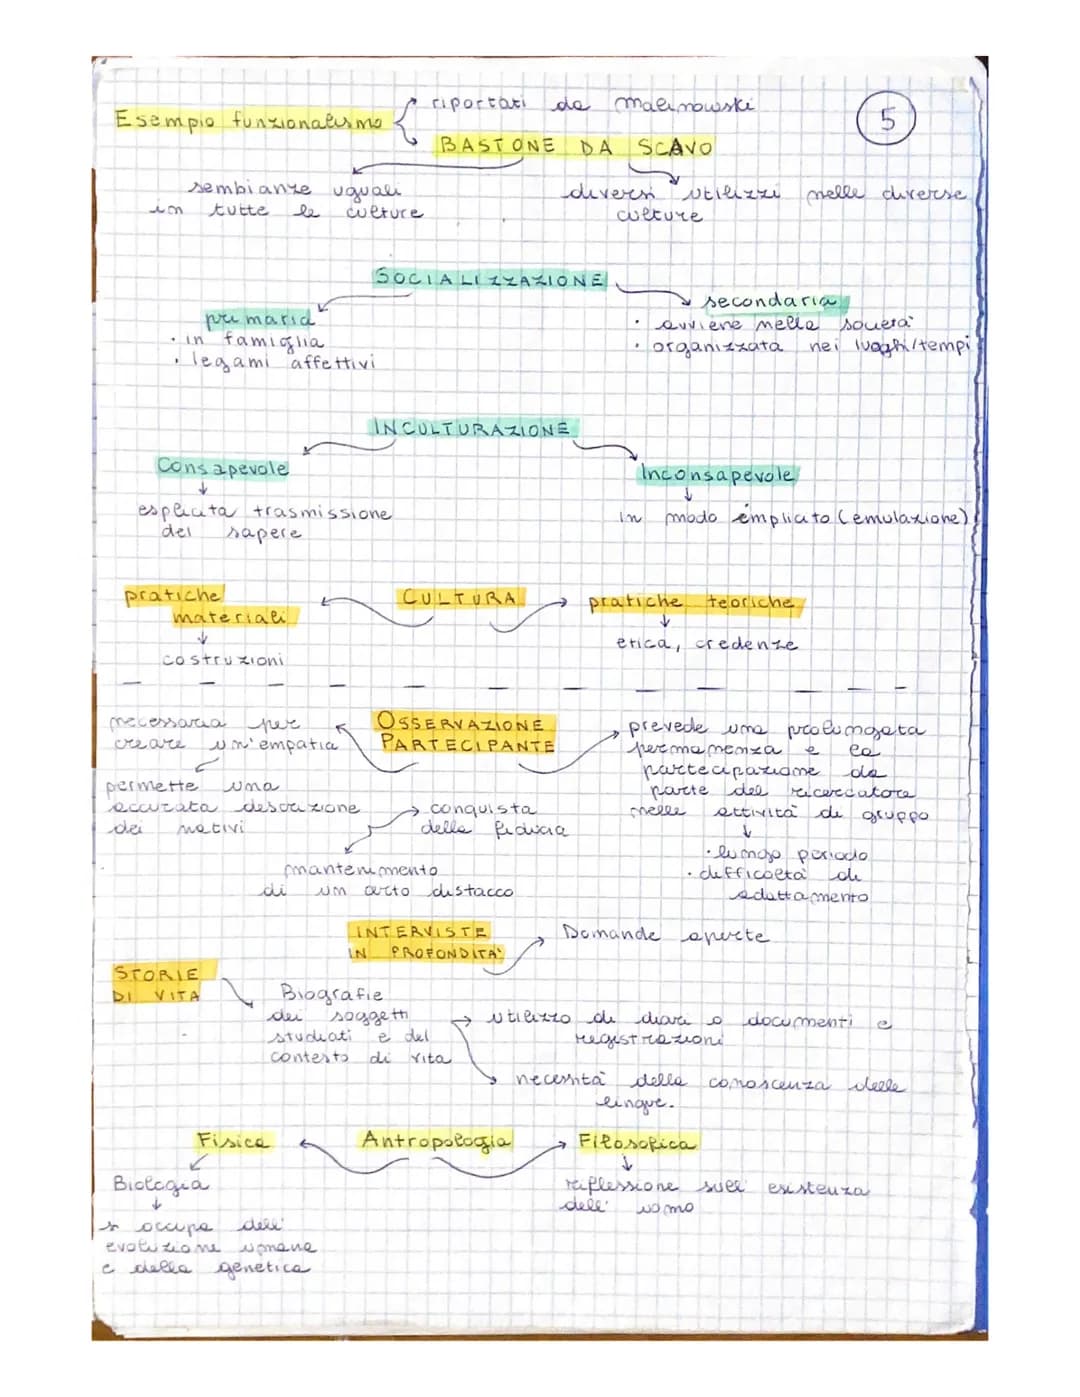 riportati da malinowski
5
Esempio funzionalismo
BASTONE DA SCAVO
sembianze uguali
in tutte le culture
diversi utilizzi nelle diverse
culture
SOCIALIZZAZIONE
primaria
• in famiglia
• legami affettivi
secondaria
• avviene nella società
• organizzata nei luoghi/tempi
INCULTURAZIONE
Consapevole
esplicita trasmissione
del sapere
Inconsapevole
in modo implicito (emulazione)
pratiche
materiali
costruzioni
CULTURA
pratiche teoriche
etica, credenze
necessaria per
creare un'empatia
permette una
accurata descrizione
dei nativi
OSSERVAZIONE
PARTECIPANTE
conquista
della fiducia
mantenimento
di un certo distacco
prevede una prolungata
permanenza e la
partecipazione da
parte del ricercatore
nelle attività di gruppo
• lungo periodo
• difficoltà di
adattamento
INTERVISTE
IN PROFONDITA'
Domande aperte
STORIE
DI VITA
Biografie
dei soggetti
studiati e del
contesto di vita
utilizzo di diari o documenti e
registrazioni
necessità della conoscenza delle
lingue.
Fisica
Antropologia
Filosofica
Biologia
si occupa dell'
evoluzione umana
e della genetica
riflessione sull' esistenza
dell' uomo